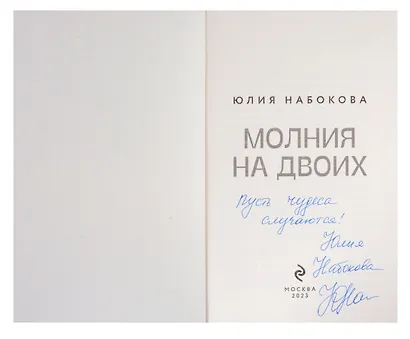 ЮЛИЯ НАБОКОВА
МОЛНИЯ
НА ДВОИХ
Пусть чудеса
случаются!
Юлия
Набокова
МОСКВА
2023